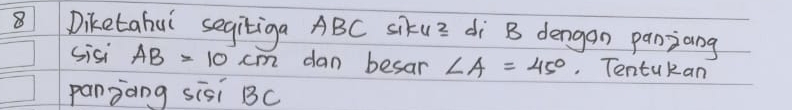 8 Diketahui segitiga ABC siku2 di B dengan panjang
sisi AB = 10 cm dan besar ∠A = 45°. Tentukan
panjang sisi BC